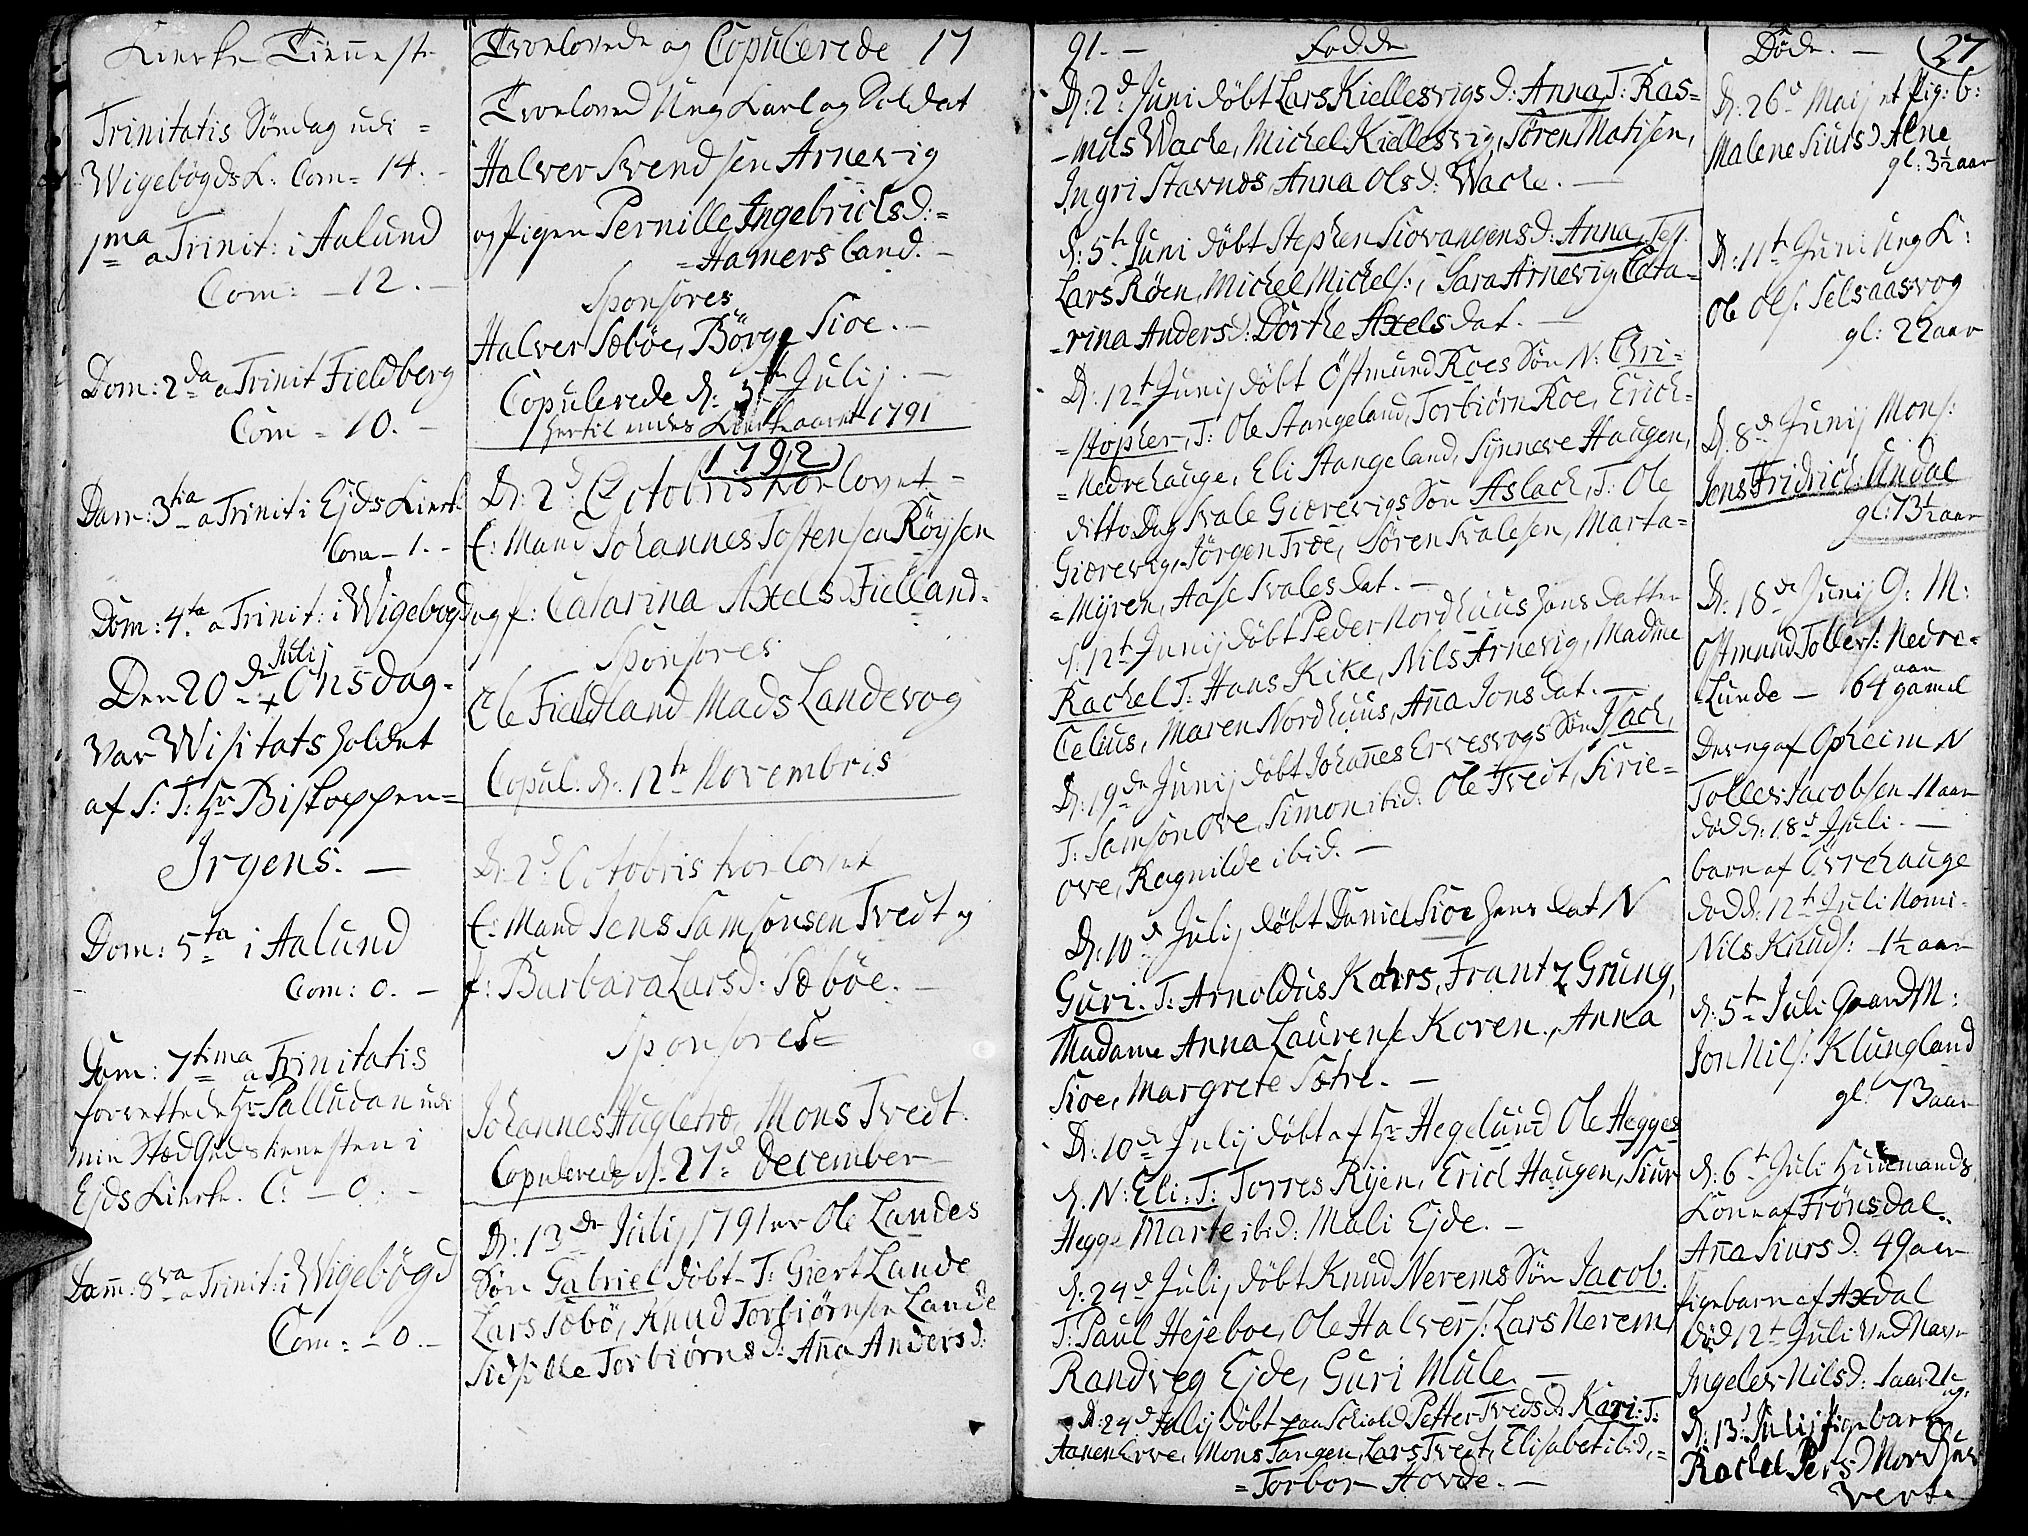 Kierke Tienneste
Trinitatis Söndag udi =
Wigebøgds K: Com = 14. -
1ma a Trinit: i Aalund
Com: - 12. -
Dom: 2da a Trinit Fieldberg
Com = 10. -
Dom: 3tia a Trinit i Ejds Kierk
Com - 1. -
Dom: 4ta a Trinit: i Wigebøgd
Julij
Den 20de + Onsdag.
Var Wisitats holdet
af S: T: Hr Biskoppen =
Irgens. -
Dom: 5ta i Aalund
Com: 0. -
Dom: 7tima a Trinitatis
forrettede Hr Palludan udi
min Stæd Gudstienesten i
Ejds Kierke. C: - 0. -
Dom: 8va a Trinit: i Wigebögd
Com: - 0. -
Trorlovede og Copulerede 17
Trorloved Ung Karl og Soldat
Halver Svendsen Arnevig
og Pigen Pernille Ingebricts d: =
= Hamersland. -
Sponsores
Halver Sæböe, Börge Sioe. -
Copulerede d: 3 Julij. -
hertil endes Kirke aaret 1791
1792
D: 2d Octobris trorlovet -
E: Mand Johannes Tostensen Röysen
og f: Catarina Axels d Fielland.
Sponsores
Ole Fieldland Mads Landevog
Copul: d: 12te Novembris
D: 2d Octobris trorlovet
E: Mand Jens Samsonsen Tvedt og
f: Barbara Lars d. Sæböe. -
Sponsores =
Johannes Hugletvæ, Mons Tvedt.
Copulerede d. 27d December
D: 13de Julij 1791 er Ole Landes
Sön Gabriel döbt - T: Giert Lande
Lars Sæbö, Knud Torbiörnsen Lande
Sidsille Torbiörns d: Anna Anders d:
91. - Fødde
D: 2d Juni döbt Lars Kiellesvigs d: Anna T: Ras =
- mus Wache, Michel Kiellesvig, Sören Matisen,
Ingri Stavnes, Anna Ols d: Wache. -
d: 5te Juni döbt Stephen Siovangens d: Anna, Test
Lars Röen, Michel Michels:, Sara Arnevig, Cata -
- rina Anders d: Dorthe Axels dat. -
D: 12te Junij döbt Östmund Roes Sön N: Chri -
= stopher, T: Ole Stangeland, Torbiörn Roe, Erich =
= Nedrehauge, Eli Stangeland, Synneve Haugen,
ditto Dag Svale Giærevigs Sön Aslach, T: Ole
Giærevig, Jörgen Træe, Sören Svalesen, Marta =
= Myren, Aase Svales dat. -
d: 12te Junij döbt Peder Nordhuus hans datter
Rachel T: Hans Kike, Nils Arnevig, Madme
Celius, Maren Nordhuus, Anna Jons dat. -
D: 19de Junij döbt Johannes Ervesvogs Sön Isach,
T: Samson Ove, Simon ibid: Ole Tvedt, Sirie =
Ove, Ragnilde ibid. -
D: 10d Julij döbt Daniel Sioe hans dat N
Guri. T: Arnoldus Kahrs, Frantz Grüng,
Madame Anna Laurense Koren, Anna
Sioe, Margrete Sætre. -
D: 10de Julij döbt af Hr Hegelund Ole Hegges
d. N: Eli: T: Torres Ryen, Erich Haugen, Siur
Hegge Marte ibid: Mali Ejde. -
d: 24d Julij döbt Knud Nerems Sön Jacob.
T: Paul Hejeboe, Ole Halvers: Lars Nerem,
Randveg Ejde, Guri Mule. -
D: 24d Julij döbt Petter Tveds d. Kari: T:
Aanen Erve, Mons Tangen, Lars Tvedt, Elisabet ibid, =
= Torbor Hovde. -
Døde. - 27
D: 26d Maij et Pig: b:
Malene Siurs d Alne
gl: 3½ aar
D: 11te Junij Ung K:
Ole Ols: Selsaasvog
gl: 22 aar
D: 8d Junij Mons:
Jens Fridrich Undal
gl: 73½ aar
D: 18de Junij G: M:
Ostmund Tollers: Nedre -
Lunde - 64 aar gamel
Dreng af Opheim N
Toller Jacobsen 11 aar
död d: 18d Juli. -
barn af Övrehauge
död d: 12te Juli Nomi -
Nils Knuds: 1½ aar
d: 5te Juli Gaard M:
Jon Nils: Klungland
gl: 73 aar
d: 6te Juli Huusmands
Kone af Frönsdal.
Anna Siurs d: 49 aar
Pigebarn af Axdal
död 12te Juli ved Navn
Ingeler Nils d: 1 aar 21 ug.
D: 13d Julij Pigebarn
Rachel Pers d Nordhus
verte